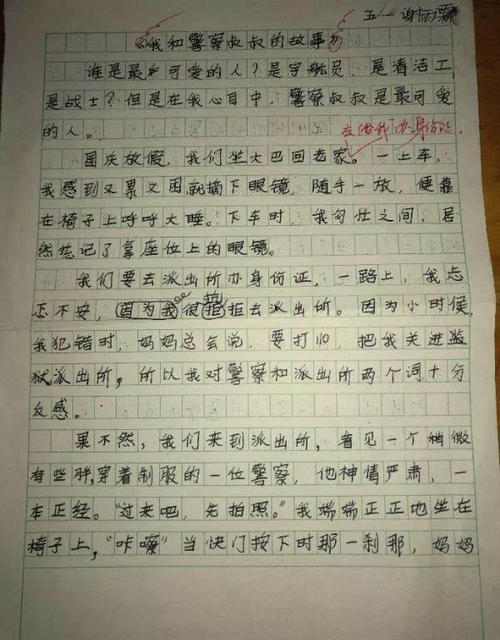 五一 谢
《我和警察叔叔的故事》
谁是最可爱的人？是宇航员，是清洁工，
是战士？但是在我心目中，警察叔叔是最可爱
的人。
去给我办身份证
国庆放假，我们坐大巴回老家。一上车，
我感到又累又困就摘下眼镜，随手一放，便靠
在椅子上呼呼大睡。下车时，我匆忙之间，居
然忘记了拿座位上的眼镜。
我们要去派出所办身份证，一路上，我忐
忑不安，因为我很抗拒去派出所。因为小时候，
我犯错时，妈妈总会说，要打110，把我关进监
狱派出所，所以我对警察和派出所两个词十分
反感。
果不然，我们来到派出所，看见一个稍微
有些胖，穿着制服的一位警察，他神情严肃，一
本正经。“过来吧，先拍照。”我端端正正地坐在
椅子上，“咔嚓”当快门按下时那一刹那，妈妈